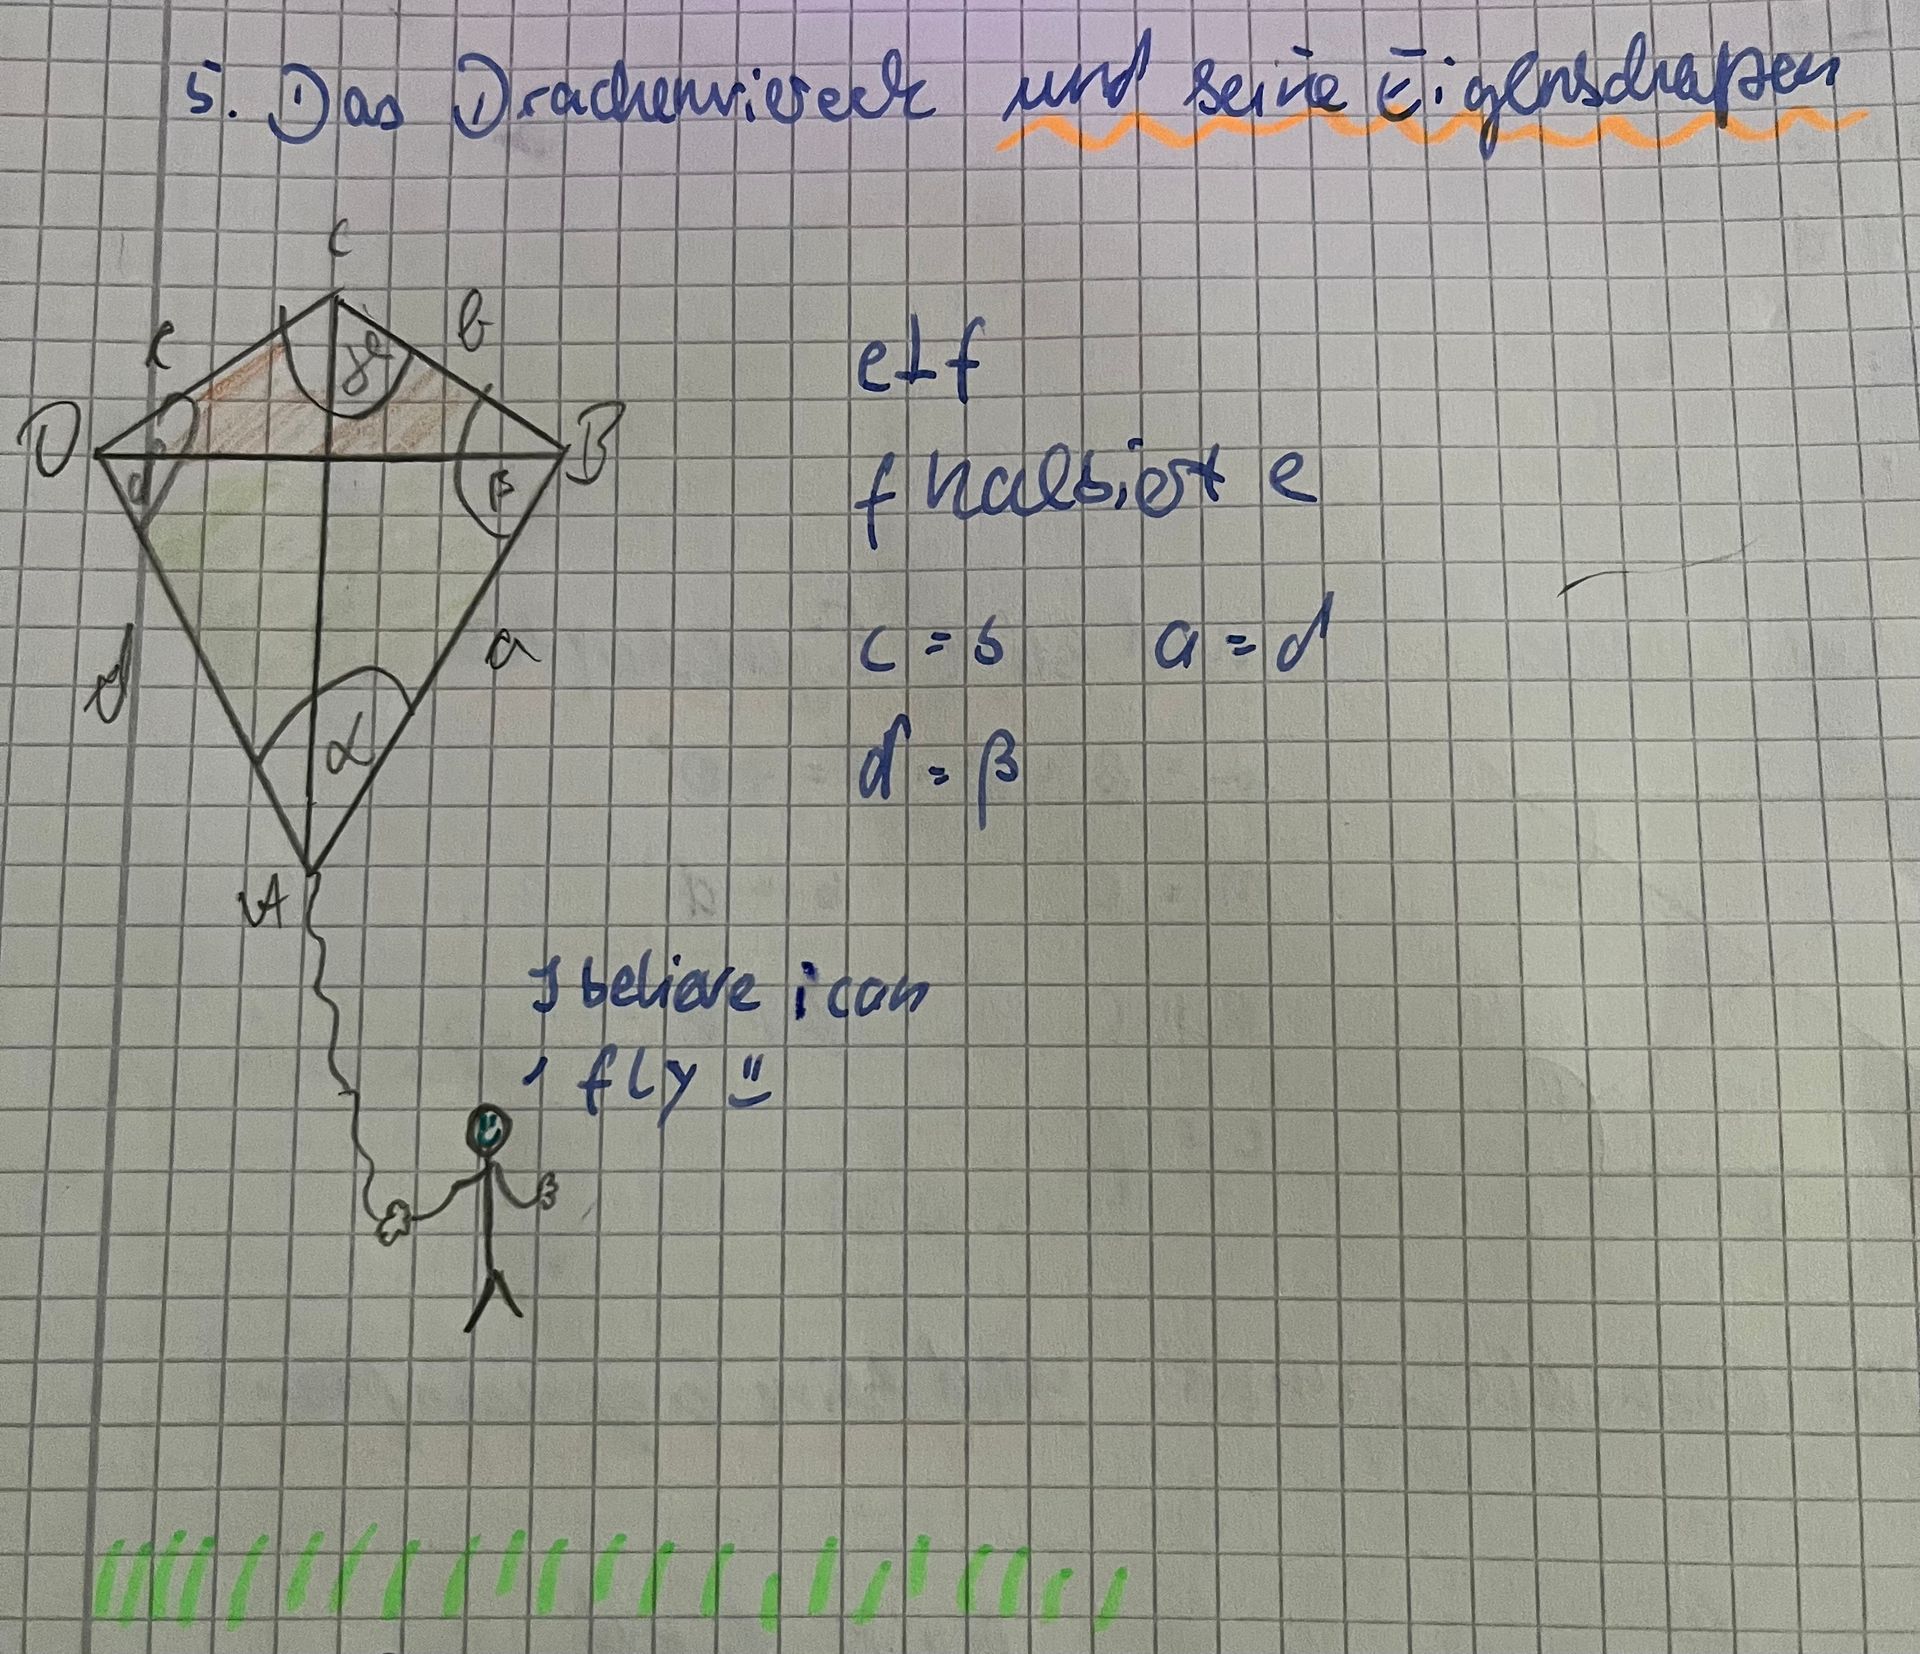 5. Das Drachenviereck und seine Eigenschaften
C
c b
γ
D B
δ β
d a
α
A
e ⊥ f
f halbiert e
c = b a = d
δ = β
I believe i can
fly